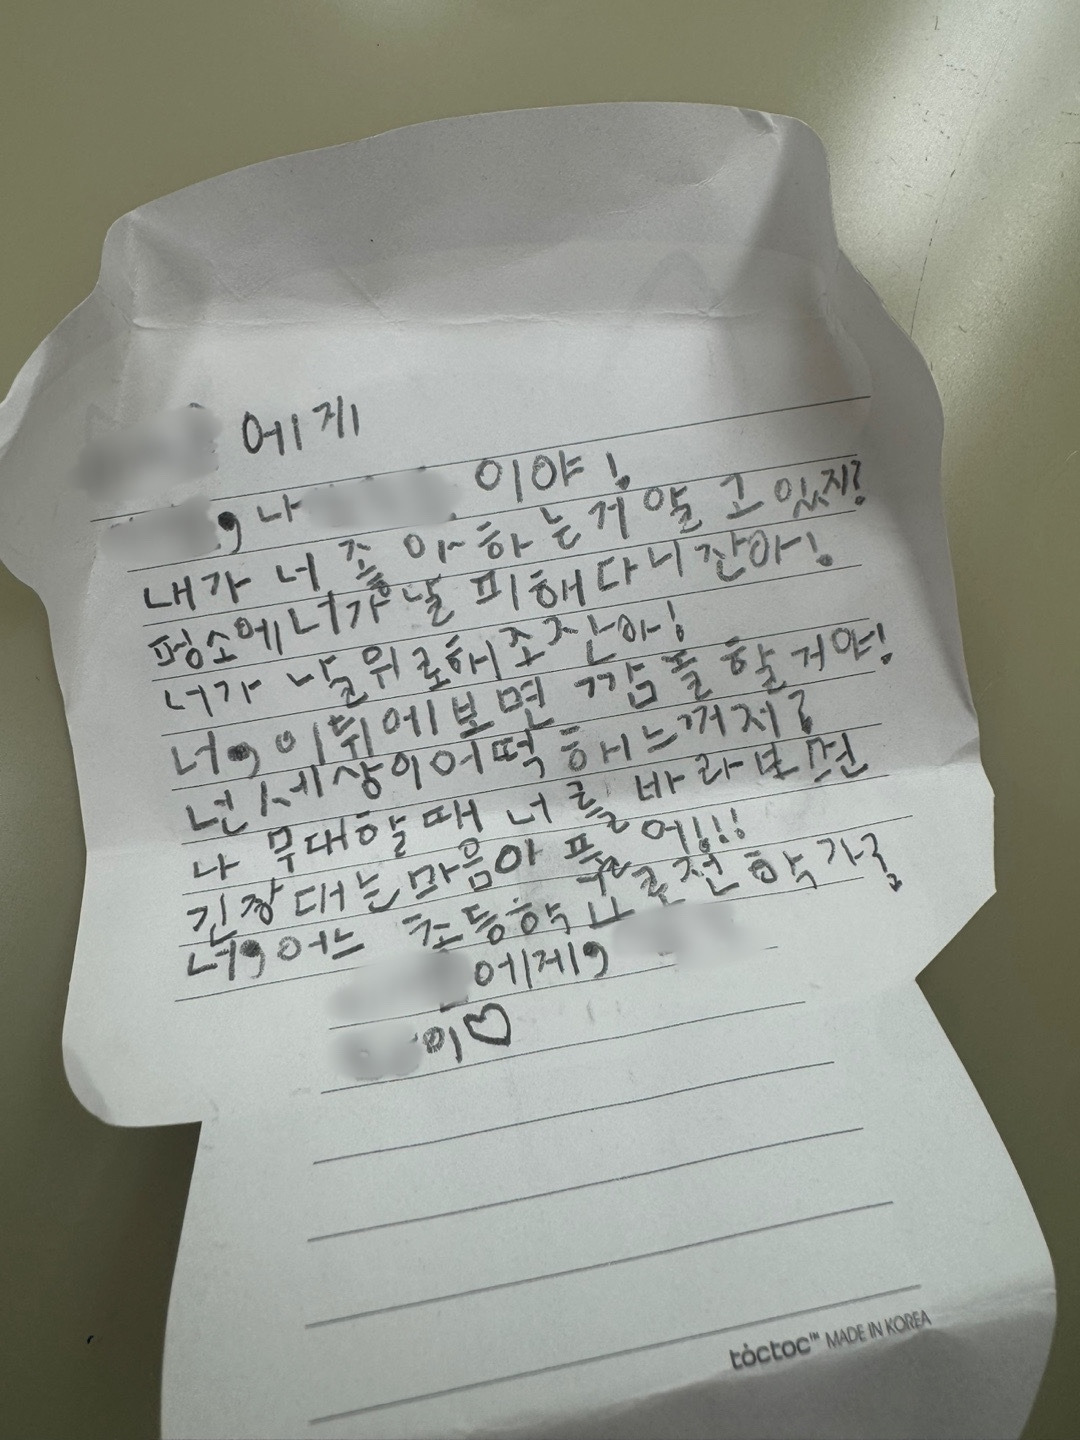 에게
, 나 이야!
내가 너 좋아하는거 알고있지?
평소에 너가 날 피해다니잔아!
너가 날 위로해조잔아!
너, 이 뒤에 보면 깜놀할거야!
넌 세상이 어떡해 느껴져?
나 무대할때 너를 바라보면
긴장대는 마음이 풀어!!!
너, 어느 초등학교로 전학가?
에게,
이♡
tòctoc™ MADE IN KOREA